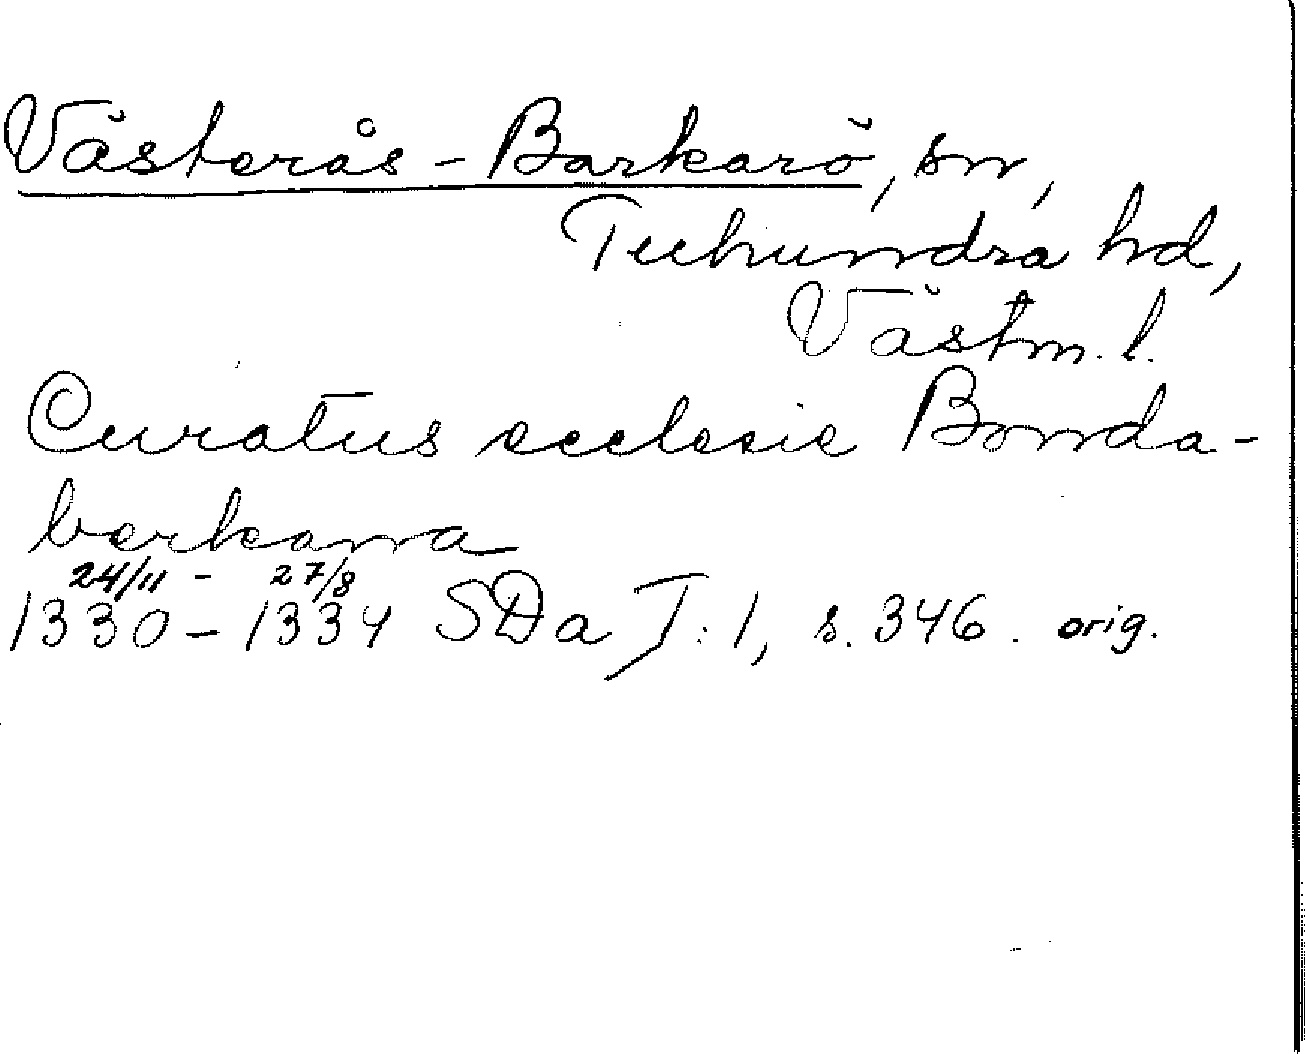 Västerås-Barkarö, sn,
Tuhundra hd,
Västm. l.
Curatus ecclesie Bonda-
berkarra
24/11 - 27/8
1330-1334 SDa I:1, s. 346. orig.